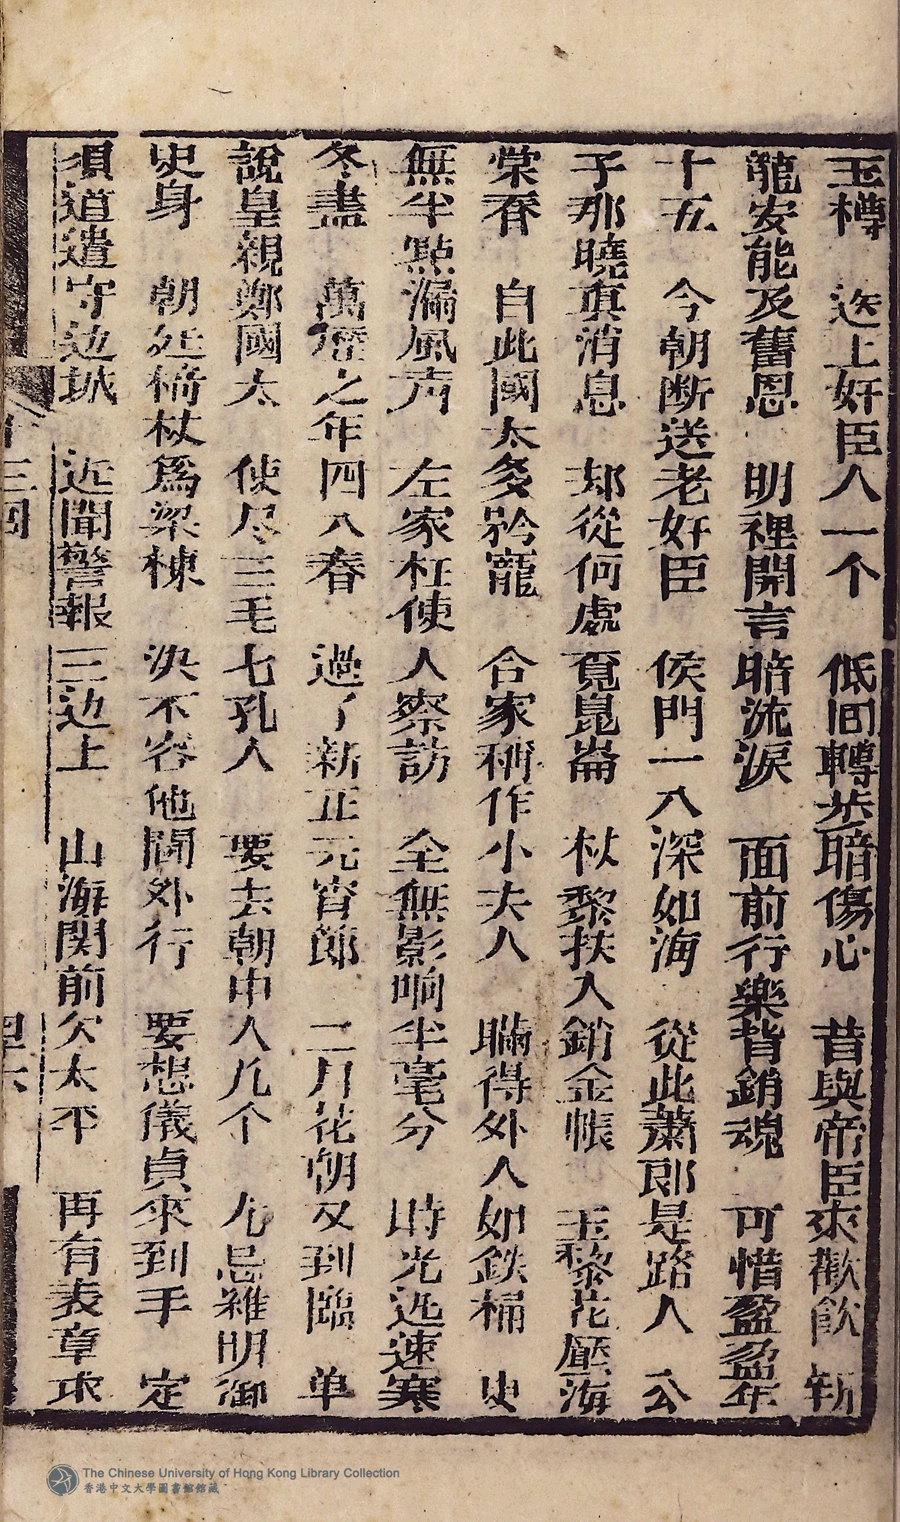 玉樽 送上奸臣人一个 低回轉步暗傷心 昔與帝臣來歡飲 新
龍安能及舊恩 明裡開言暗流淚 面前行樂背銷魂 可惜盈盈年
十五 今朝断送老奸臣 侯門一入深如海 從此蕭郎是路人 公
子那曉真消息 却從何處覓崑崙 杖黎扶入銷金帳 玉黎花壓海
棠春 自此國太多矜寵 合家稱作小夫人 瞞得外人如鉄桶 史
無半點漏風声 左家枉使人察訪 全無影响半毫分 時光迅速寒
冬盡 萬曆之年四八春 過了新正元宵節 二月花朝又到臨 单
說皇親鄭國太 使尽三毛七孔人 要去朝中人几个 尤忌雒明御
史身 朝廷倚杖為梁棟 决不容他闗外行 要想儀貞來到手 定
須道遣守边城 近聞警報三边上 山海関前欠太平 再有表章求
十三回
四六
The Chinese University of Hong Kong Library Collection
香港中文大學圖書館館藏